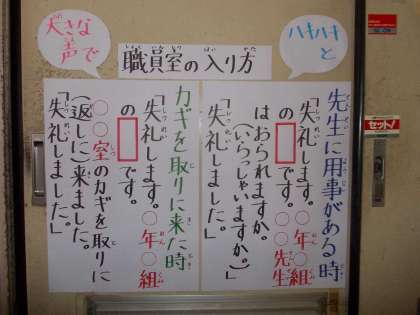 大きな
声で
ハキハキ
と
職員室の入り方
しょくいんしつ はい かた
先生に用事がある時
「失礼します。○年○組
の□です。○○先生
はおられますか。
(いらっしゃいますか。)」
「失礼しました。」
カギを取りに来た時
「失礼します。○年○組
の□です。
○○室のカギを取りに
(返しに)来ました。」
「失礼しました。」
セット!